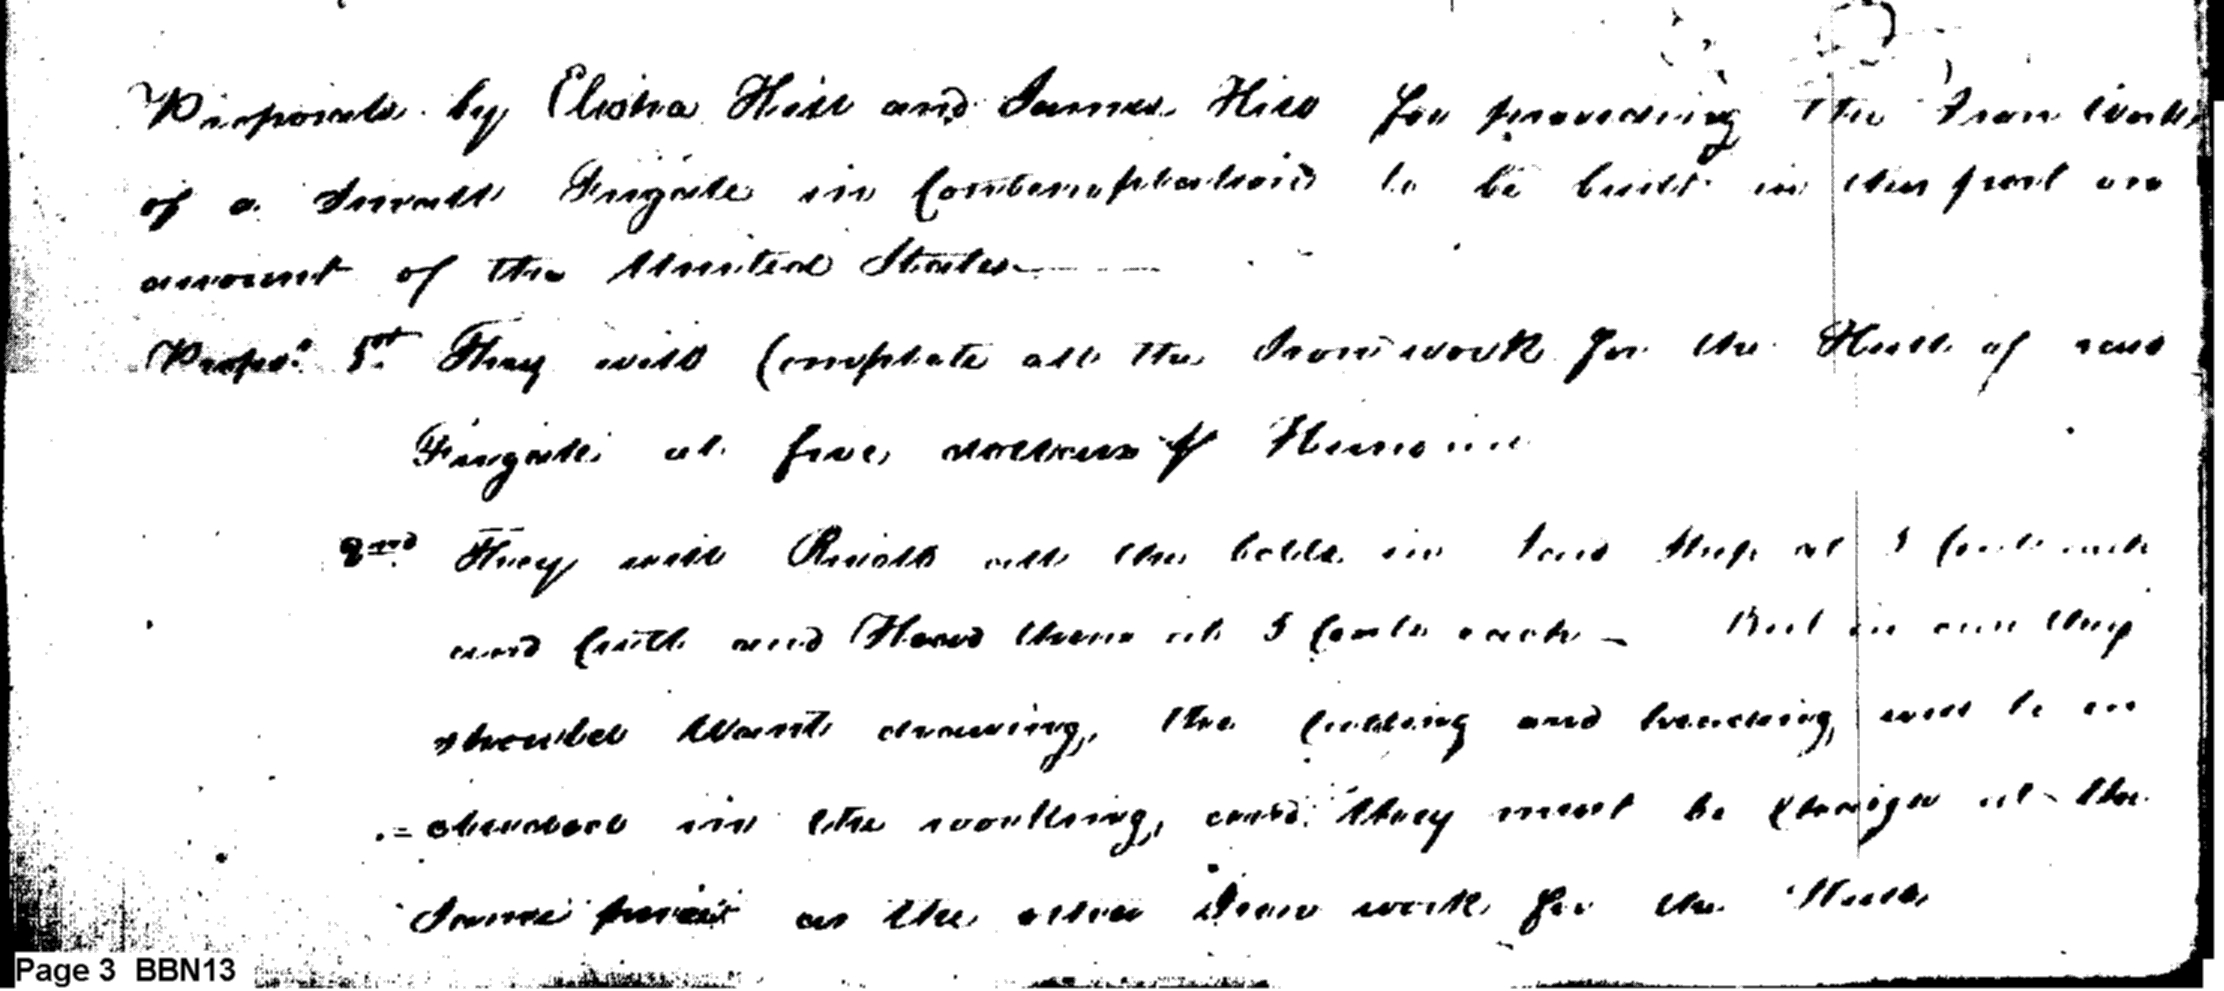 Proposals by Elisha Hill and James Hill for providing the Iron Work
of a Small Frigate in Contemplation to be built in this port on
amount of the United States
Propo.s 1st They will Complete all the Iron work for the Hull of said
Frigate at five dollars
2nd They will Rivett all the bolts in Said Ship at 5 Cents each
and Cutt and Head them at 5 Cents each - But in case they
should Want drawing, the Cutting and heading, will be in
=cluded in the working, and they must be Charged at the
Same price as the other Iron work for the Hull
Page 3 BBN13